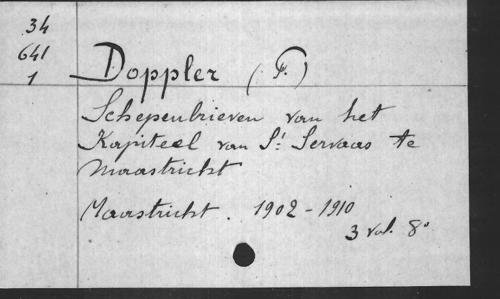 34
641
1
Doppler (F.)
Schepenbrieven van het
Kapiteel van St Servaas te
Maastricht
Maastricht. 1902-1910
3 vol. 8°